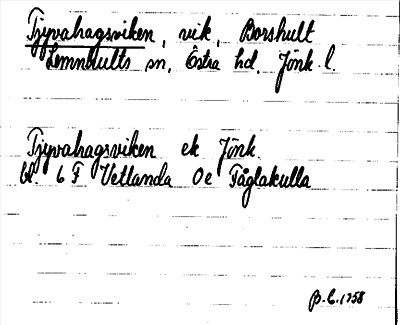 Tjyvahagsviken, vik, Borshult
Lemnhults sn, Östra hd, Jönk. l.
Tjyvahagsviken ek Jönk.
bl 6 F Vetlanda Oe Fåglakulla